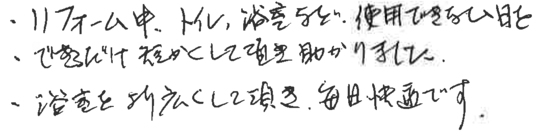 ・リフォーム中、トイレ、浴室など、使用できない日を
・できるだけ短かくして頂き助かりました。
・浴室をより広くして頂き、毎日快適です。